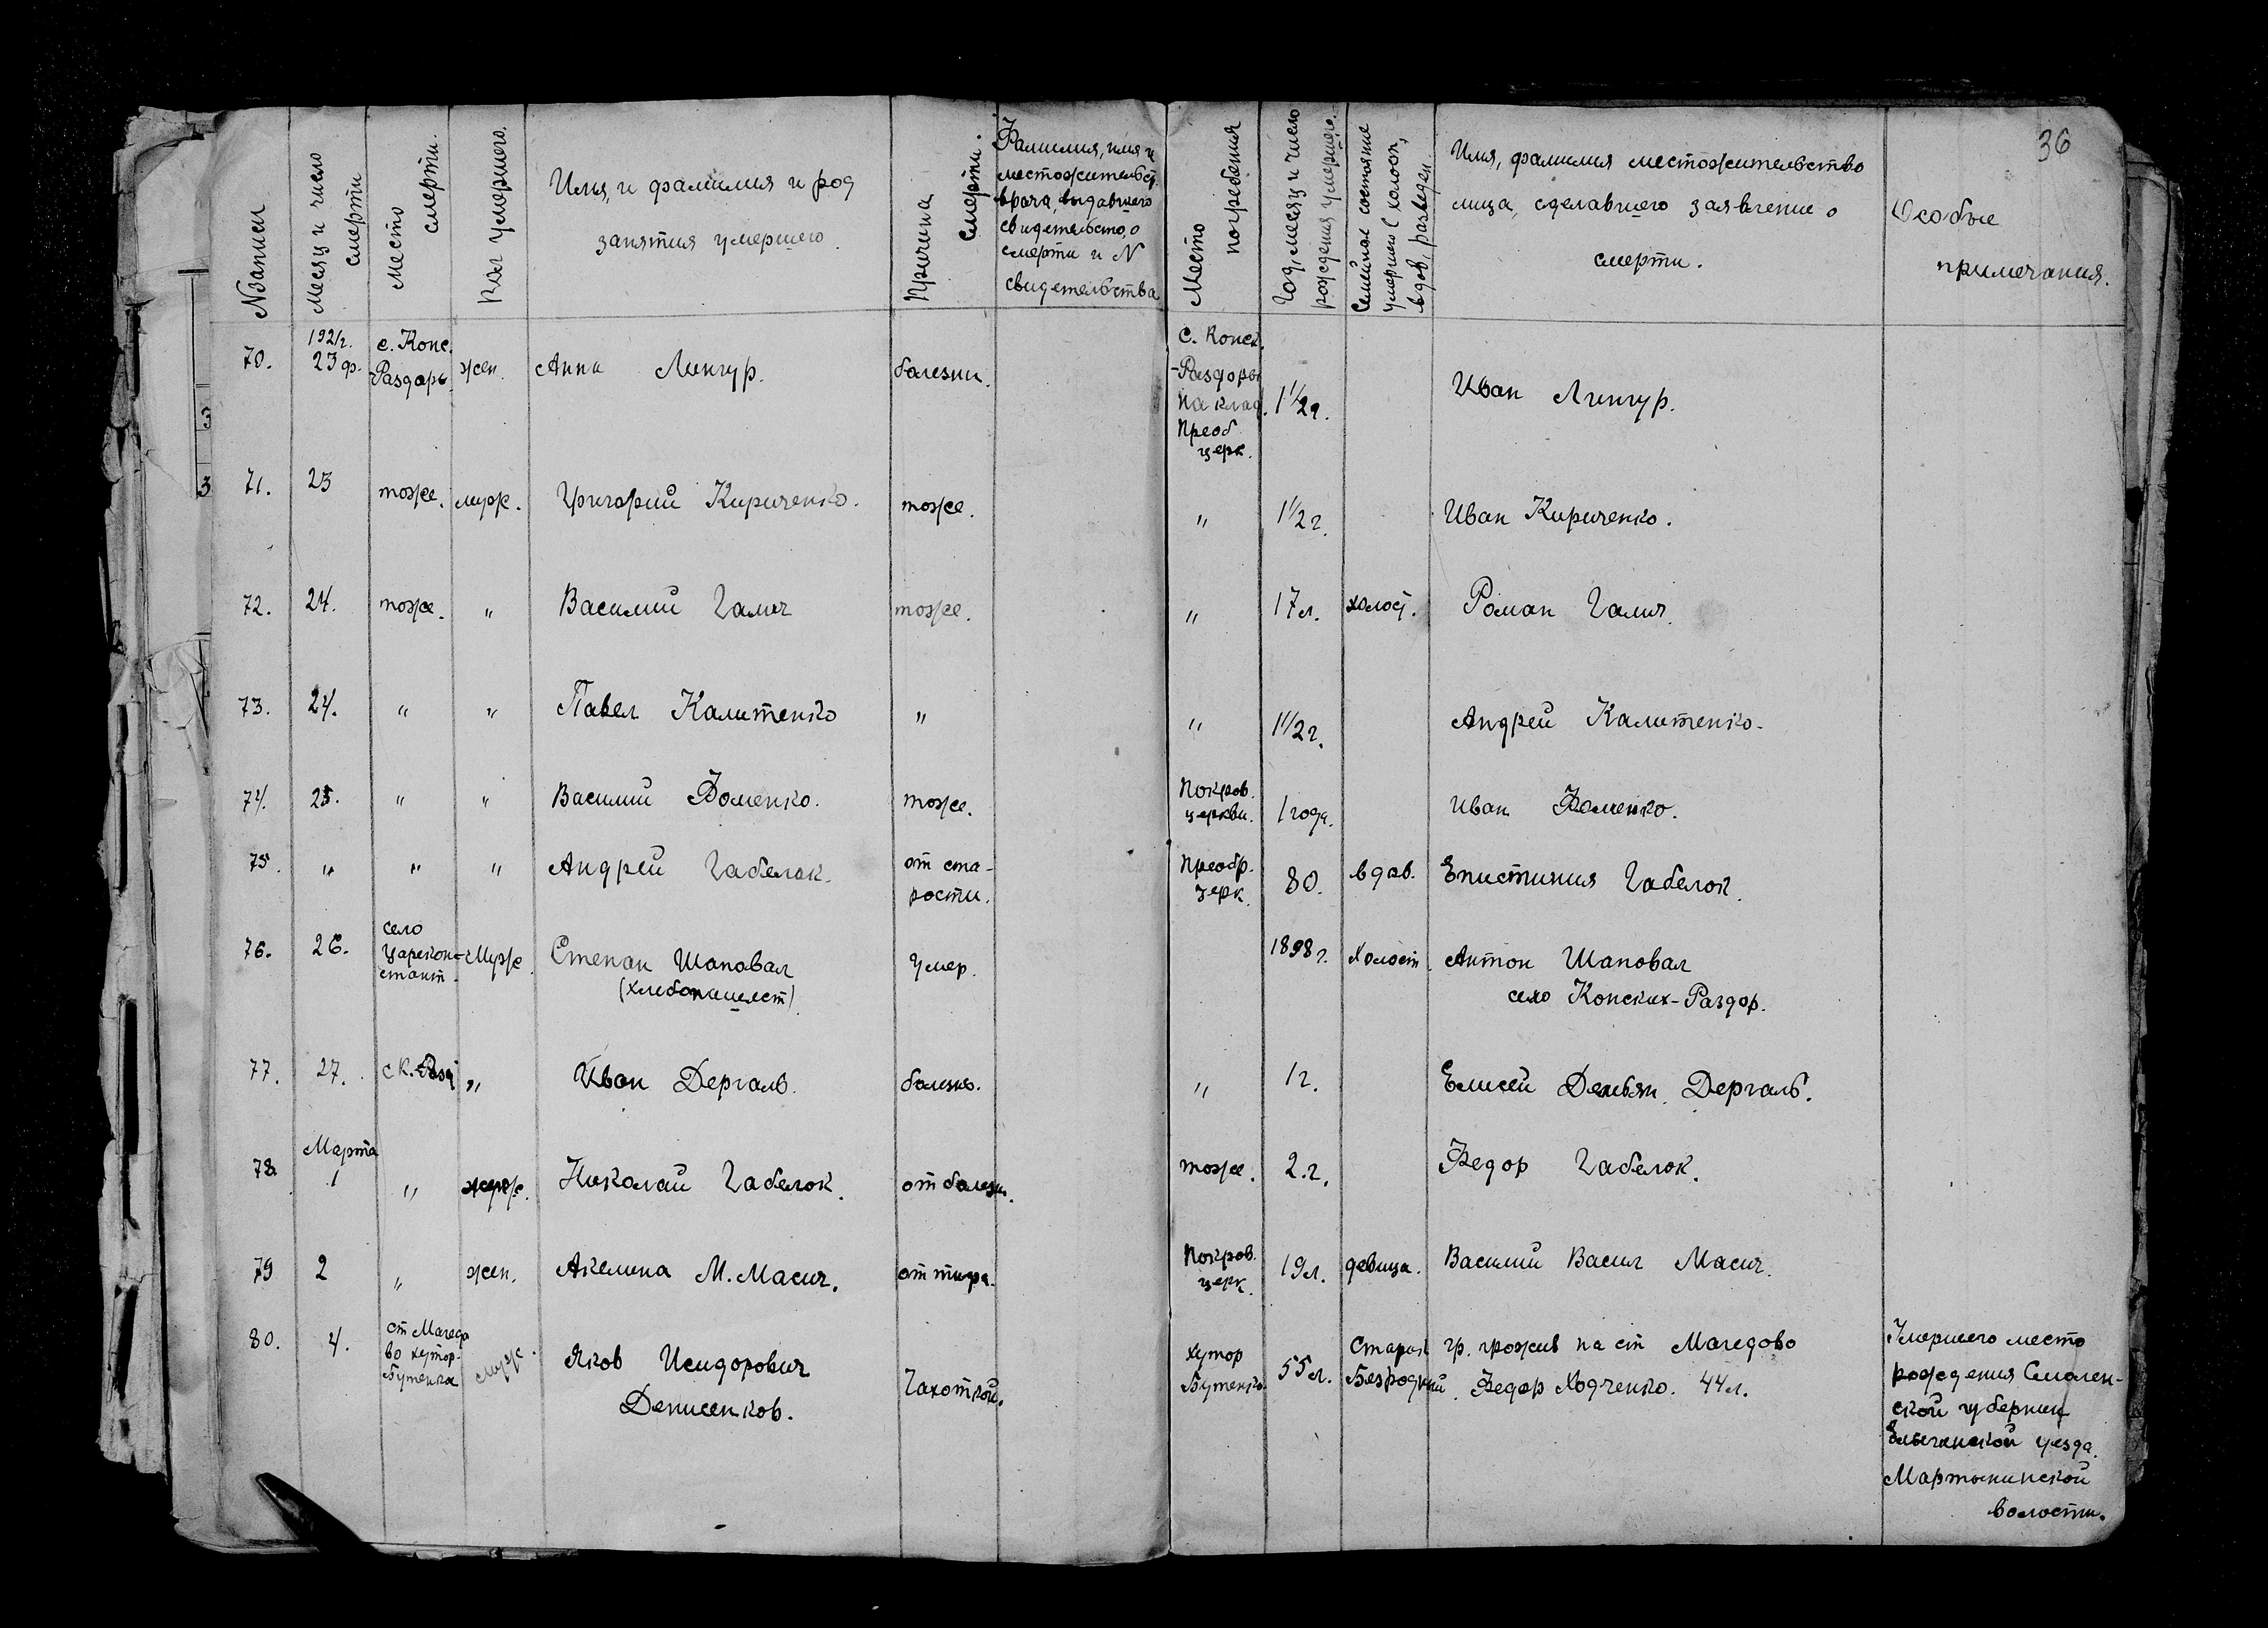 36
№ записи
Месяц и число смерти
Место смерти.
Пол умершего.
Имя, и фамилия и род
занятия умершего.
Причина смерти.
Фамилия, имя и
местожительст.
врача, выдавшего
свидетельство, о
смерти и N
свидетельства
Место погребения
Год, месяц и число рождения умершего.
Семейное состояние умершего (холост, вдов, разведен.
Имя, фамилия местожительство
лица, сделавшего заявление о
смерти.
Особые
примечания.
70. 1921г. 23 ф. с. Конс. -Раздоры. жен. Анна Лингур. болезни. с. Конск. -Раздоры на клад. Преоб церк. 1 1/2 г. Иван Лингур.
71. 23 тоже. муж. Григорий Кириченко. тоже. " 1 1/2 г. Иван Кириченко.
72. 24. тоже. " Василий Галич тоже. " 17 л. холост. Роман Галич.
73. 24. " " Павел Калитенко " " 1 1/2 г. Андрей Калитенко.
74. 25. " " Василий Фоменко. тоже. Покров. церкви. 1 года. Иван Фоменко.
75. " " " Андрей Габелок. от старости. Преобр. церк. 80. вдов. Епистимия Габелок.
76. 26. село Царекон-стант. Муж. Степан Шаповал умер. 1898 г. Холост. Антон Шаповал
(хлебопашест) село Конских-Раздор.
77. 27. с К. Разд " Иван Дергаль. болезнь. " 1 г. Елисей Демьян. Дергаль.
78. Марта 1 " муж. Николай Габелок. от болезн. тоже. 2. г. Федор Габелок.
79 2 " жен. Акелина М. Масич. от тифа. Покров. церк. 19 л. девица. Василий Васил Масич.
80. 4. ст Магедово хутор-Бутенка муж. Яков Исидорович
Денисенков. Чахоткой. хутор Бутенко. 55 л. Старик Безродный. гр. прожив на ст Магедово
Федор Ходченко. 44 л.
Умершего место
рождения Смолен-
ской губернии
уезда.
Мартынинской
волости.